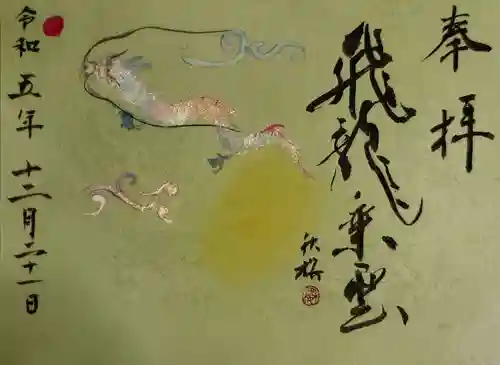 奉拝
飛龍乗雲
令和五年十二月二十一日